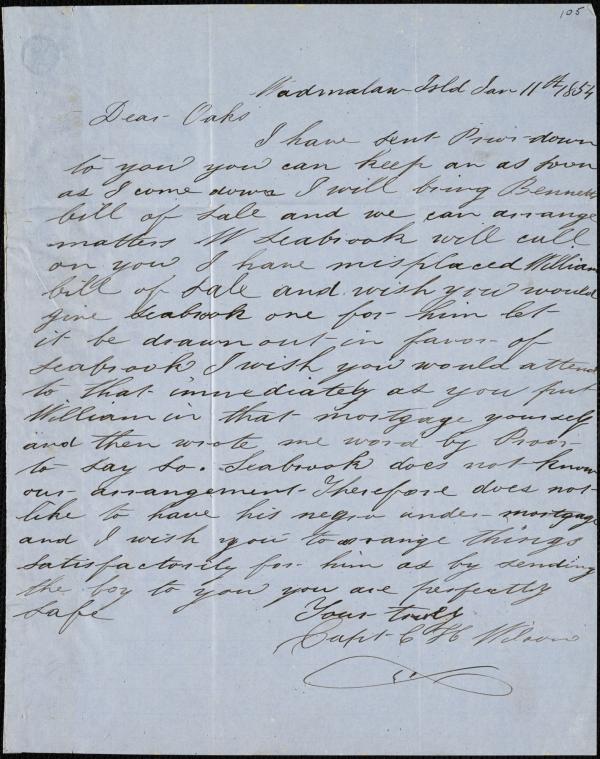 105
Wadmalaw Isld Jan 11th 1854
Dear Oaks
I have sent Prior down
to you you can keep an as soon
as I come down I will bring Bennett
bill of sale and we can arrange
matters W Seabrook will call
on you I have misplaced William
bill of sale and wish you would
give Seabrook one for him let
it be drawn out in favor of
Seabrook I wish you would attend
to that immediately as you put
William in that mortgage yourself
and then wrote me word by Prior
to say so. Seabrook does not know
our arrangement Therefore does not
like to have his negro under mortgage
and I wish you to arange things
satisfactorily for him as by sending
the boy to you you are perfectly
safe
Yours truly
Capt C H Wilson